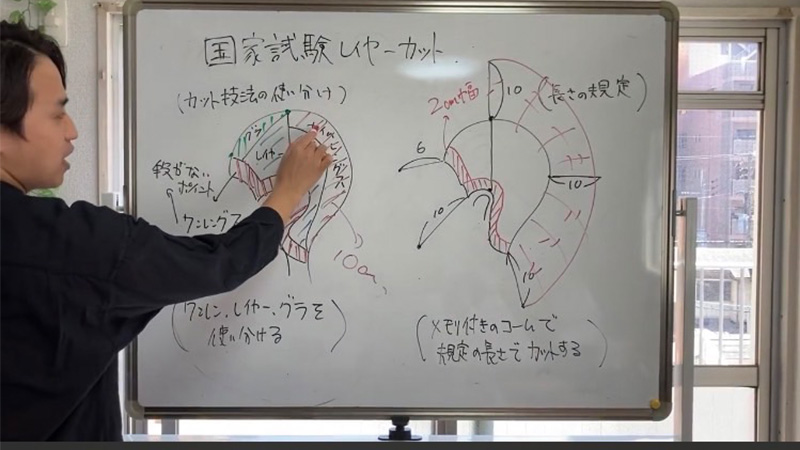 国家試験レイヤーカット.
(カット技法の使い分け)
グラ
レイヤー
段がない
ポイント
ワンレングス
10cm
(ワンレン、レイヤー、グラを
使い分ける)
2cm幅
10
(長さの規定)
6
10
10
10
(メモリ付きのコームで
規定の長さでカットする)